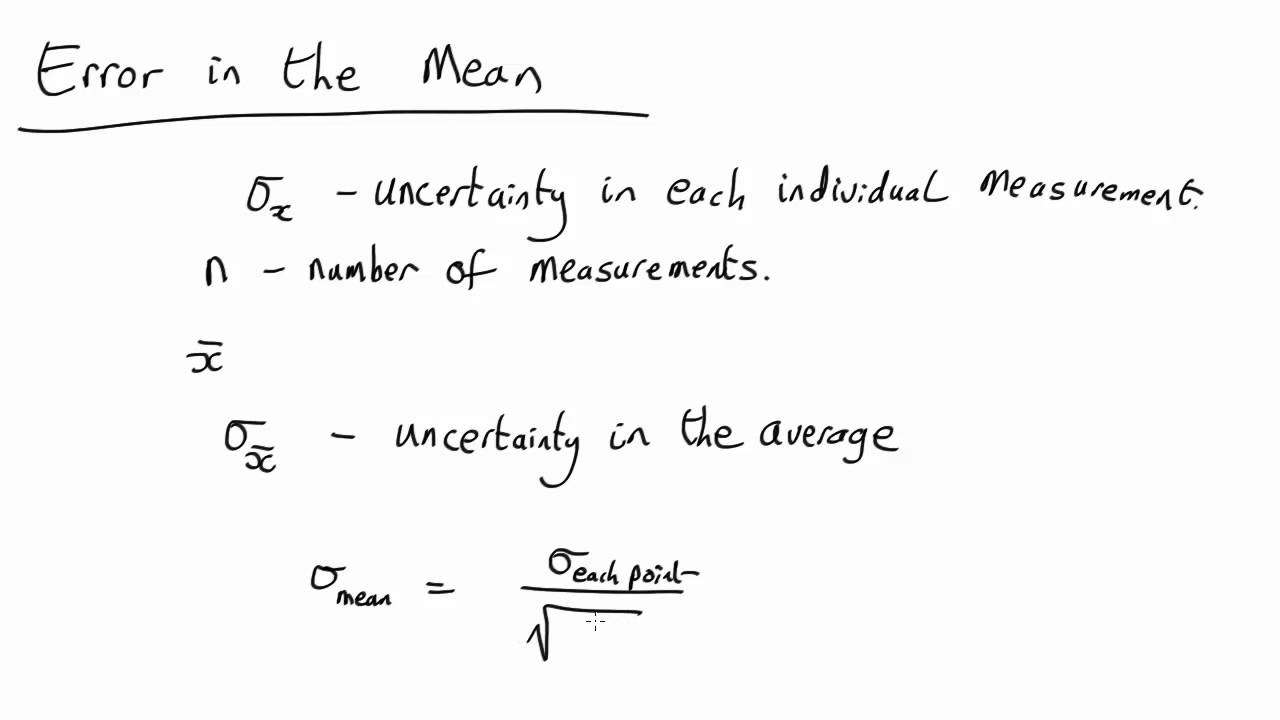 Error in the Mean
σx - uncertainty in each individual measurement.
n - number of measurements.
x̄
σx̄ - uncertainty in the average
σmean = σeach point
√